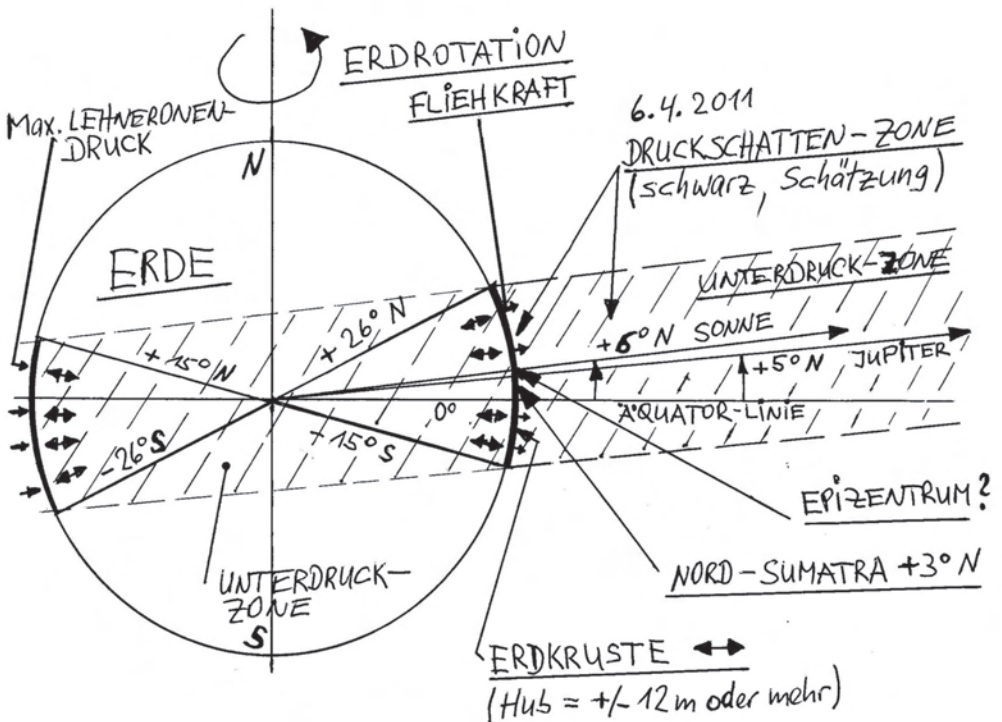 ERDROTATION
FLIEHKRAFT
Max. LEHNERONEN-
DRUCK
6.4.2011
DRUCKSCHATTEN-ZONE
(schwarz, Schätzung)
N
ERDE
UNTERDRUCK-ZONE
+26° N
+6° N SONNE
+15° N
+5° N JUPITER
0°
ÄQUATOR-LINIE
-26° S
-15° S
EPIZENTRUM?
UNTERDRUCK-
ZONE
NORD-SUMATRA +3° N
S
ERDKRUSTE
(Hub = +/- 12 m oder mehr)